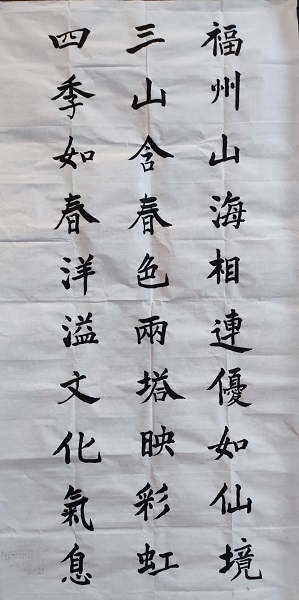 福州山海相連優如仙境
三山含春色兩塔映彩虹
四季如春洋溢文化氣息